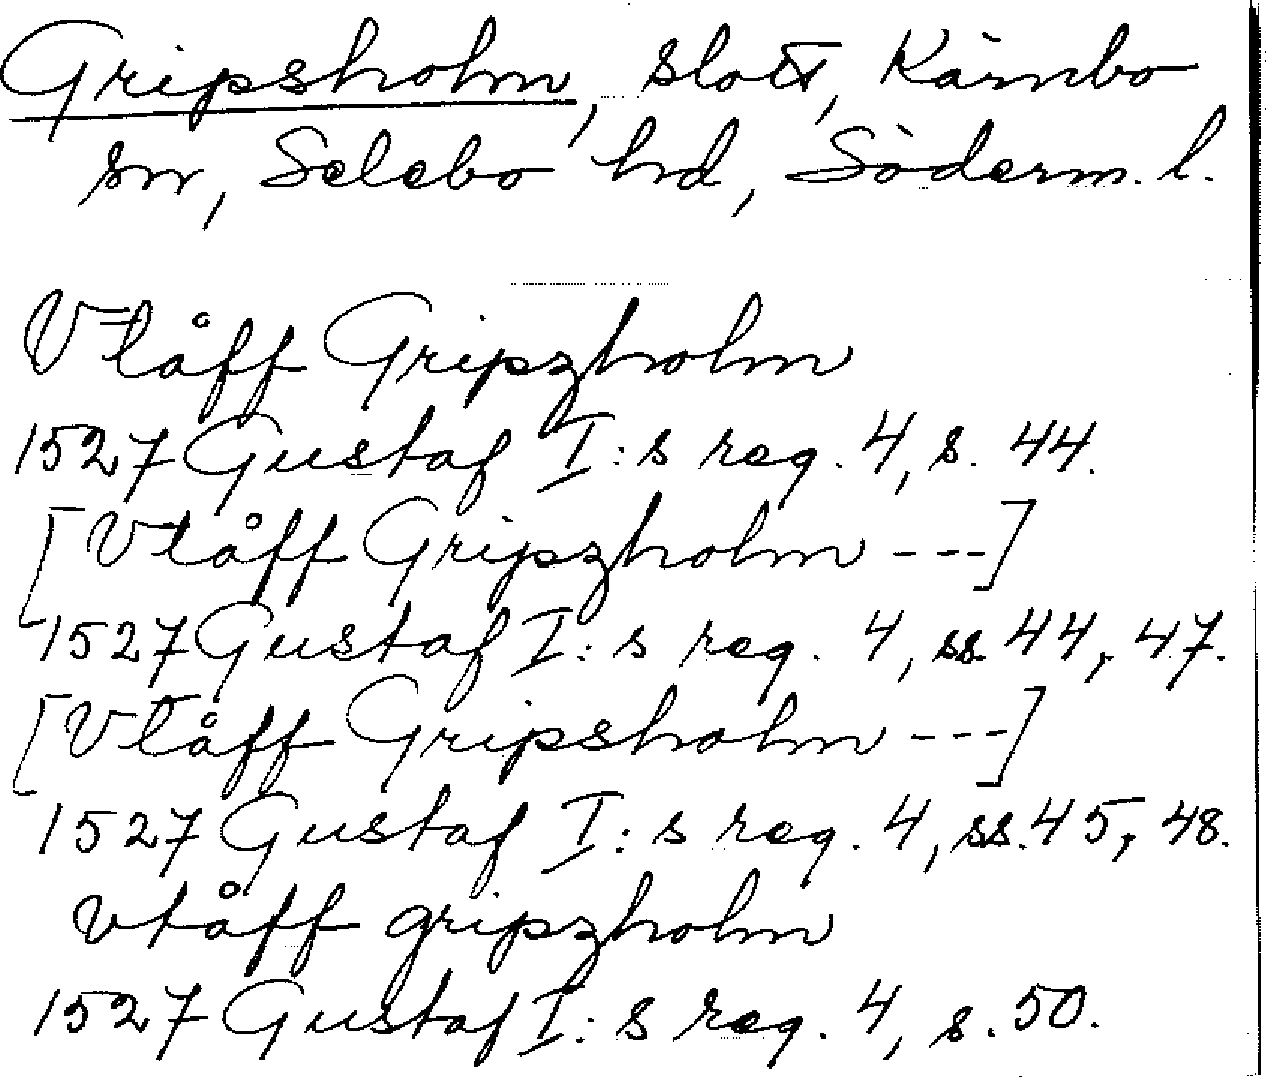 Gripsholm, slott, Kärnbo
sn, Selebo hd, Söderm. l.
Vtåff Gripzholm
1527 Gustaf I:s reg. 4, s. 44.
[Vtåff Gripzholm ---]
1527 Gustaf I:s reg. 4, ss. 44, 47.
[Vtåff Gripsholm ---]
1527 Gustaf I:s reg. 4, ss. 45, 48.
vtåff gripzholm
1527 Gustaf I:s reg. 4, s. 50.